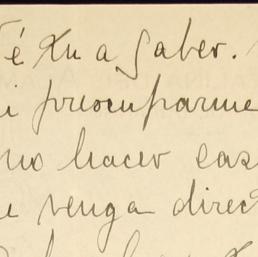 a saber.
preocuparme
no hacer cas
e venga direc